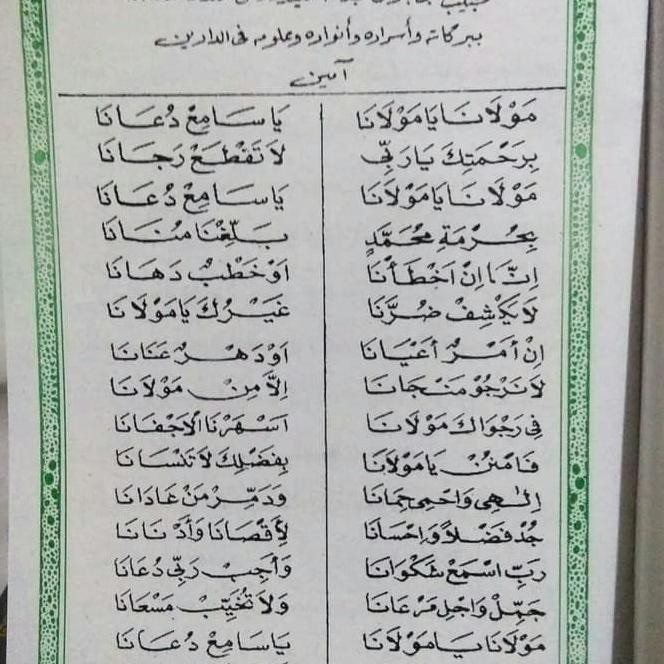 ببركاته وأسراره وأنواره وعلومه فى الدارين
آمين
مَوْلَانَا يَا مَوْلَانَا يَا سَامِعْ دُعَانَا
بِرَحْمَتِكَ يَا رَبِّى لَا تَقْطَعْ رَجَانَا
مَوْلَانَا يَا مَوْلَانَا يَا سَامِعْ دُعَانَا
بِحُرْمَةِ مُحَمَّدٍ بَلِّغْنَا مُنَانَا
إِنَّا إِنْ اَخْطَأْنَا اَوْ خَطْبٌ دَهَانَا
لَا يَكْشِفْ ضُرَّنَا غَيْرُكَ يَا مَوْلَانَا
إِنْ أَمْرٌ أَعْيَانَا اَوْ دَهْرٌ عَنَانَا
لَا نَرْجُوْ مَنْجَانَا اِلَّا مِنْ مَوْلَانَا
فِى رَجْوَاكَ مَوْلَانَا اَسْهَرْنَا الْاَجْفَانَا
فَامْنُنْ يَا مَوْلَانَا بِفَضْلِكَ لَا تَنْسَانَا
اِلٰهِى وَاحْمِى حِمَانَا وَدَمِّرْ مَنْ عَادَانَا
جُدْ فَضْلًا وَاِحْسَانَا لِأَقْصَانَا وَأَدْنَانَا
رَبِّ اسْمَعْ شَكْوَانَا وَأَجِبْ رَبِّى دُعَانَا
جَمِّلْ وَاجْلِ مَرْعَانَا وَلَا تُخَيِّبْ مَسْعَانَا
مَوْلَانَا يَا مَوْلَانَا يَا سَامِعْ دُعَانَا